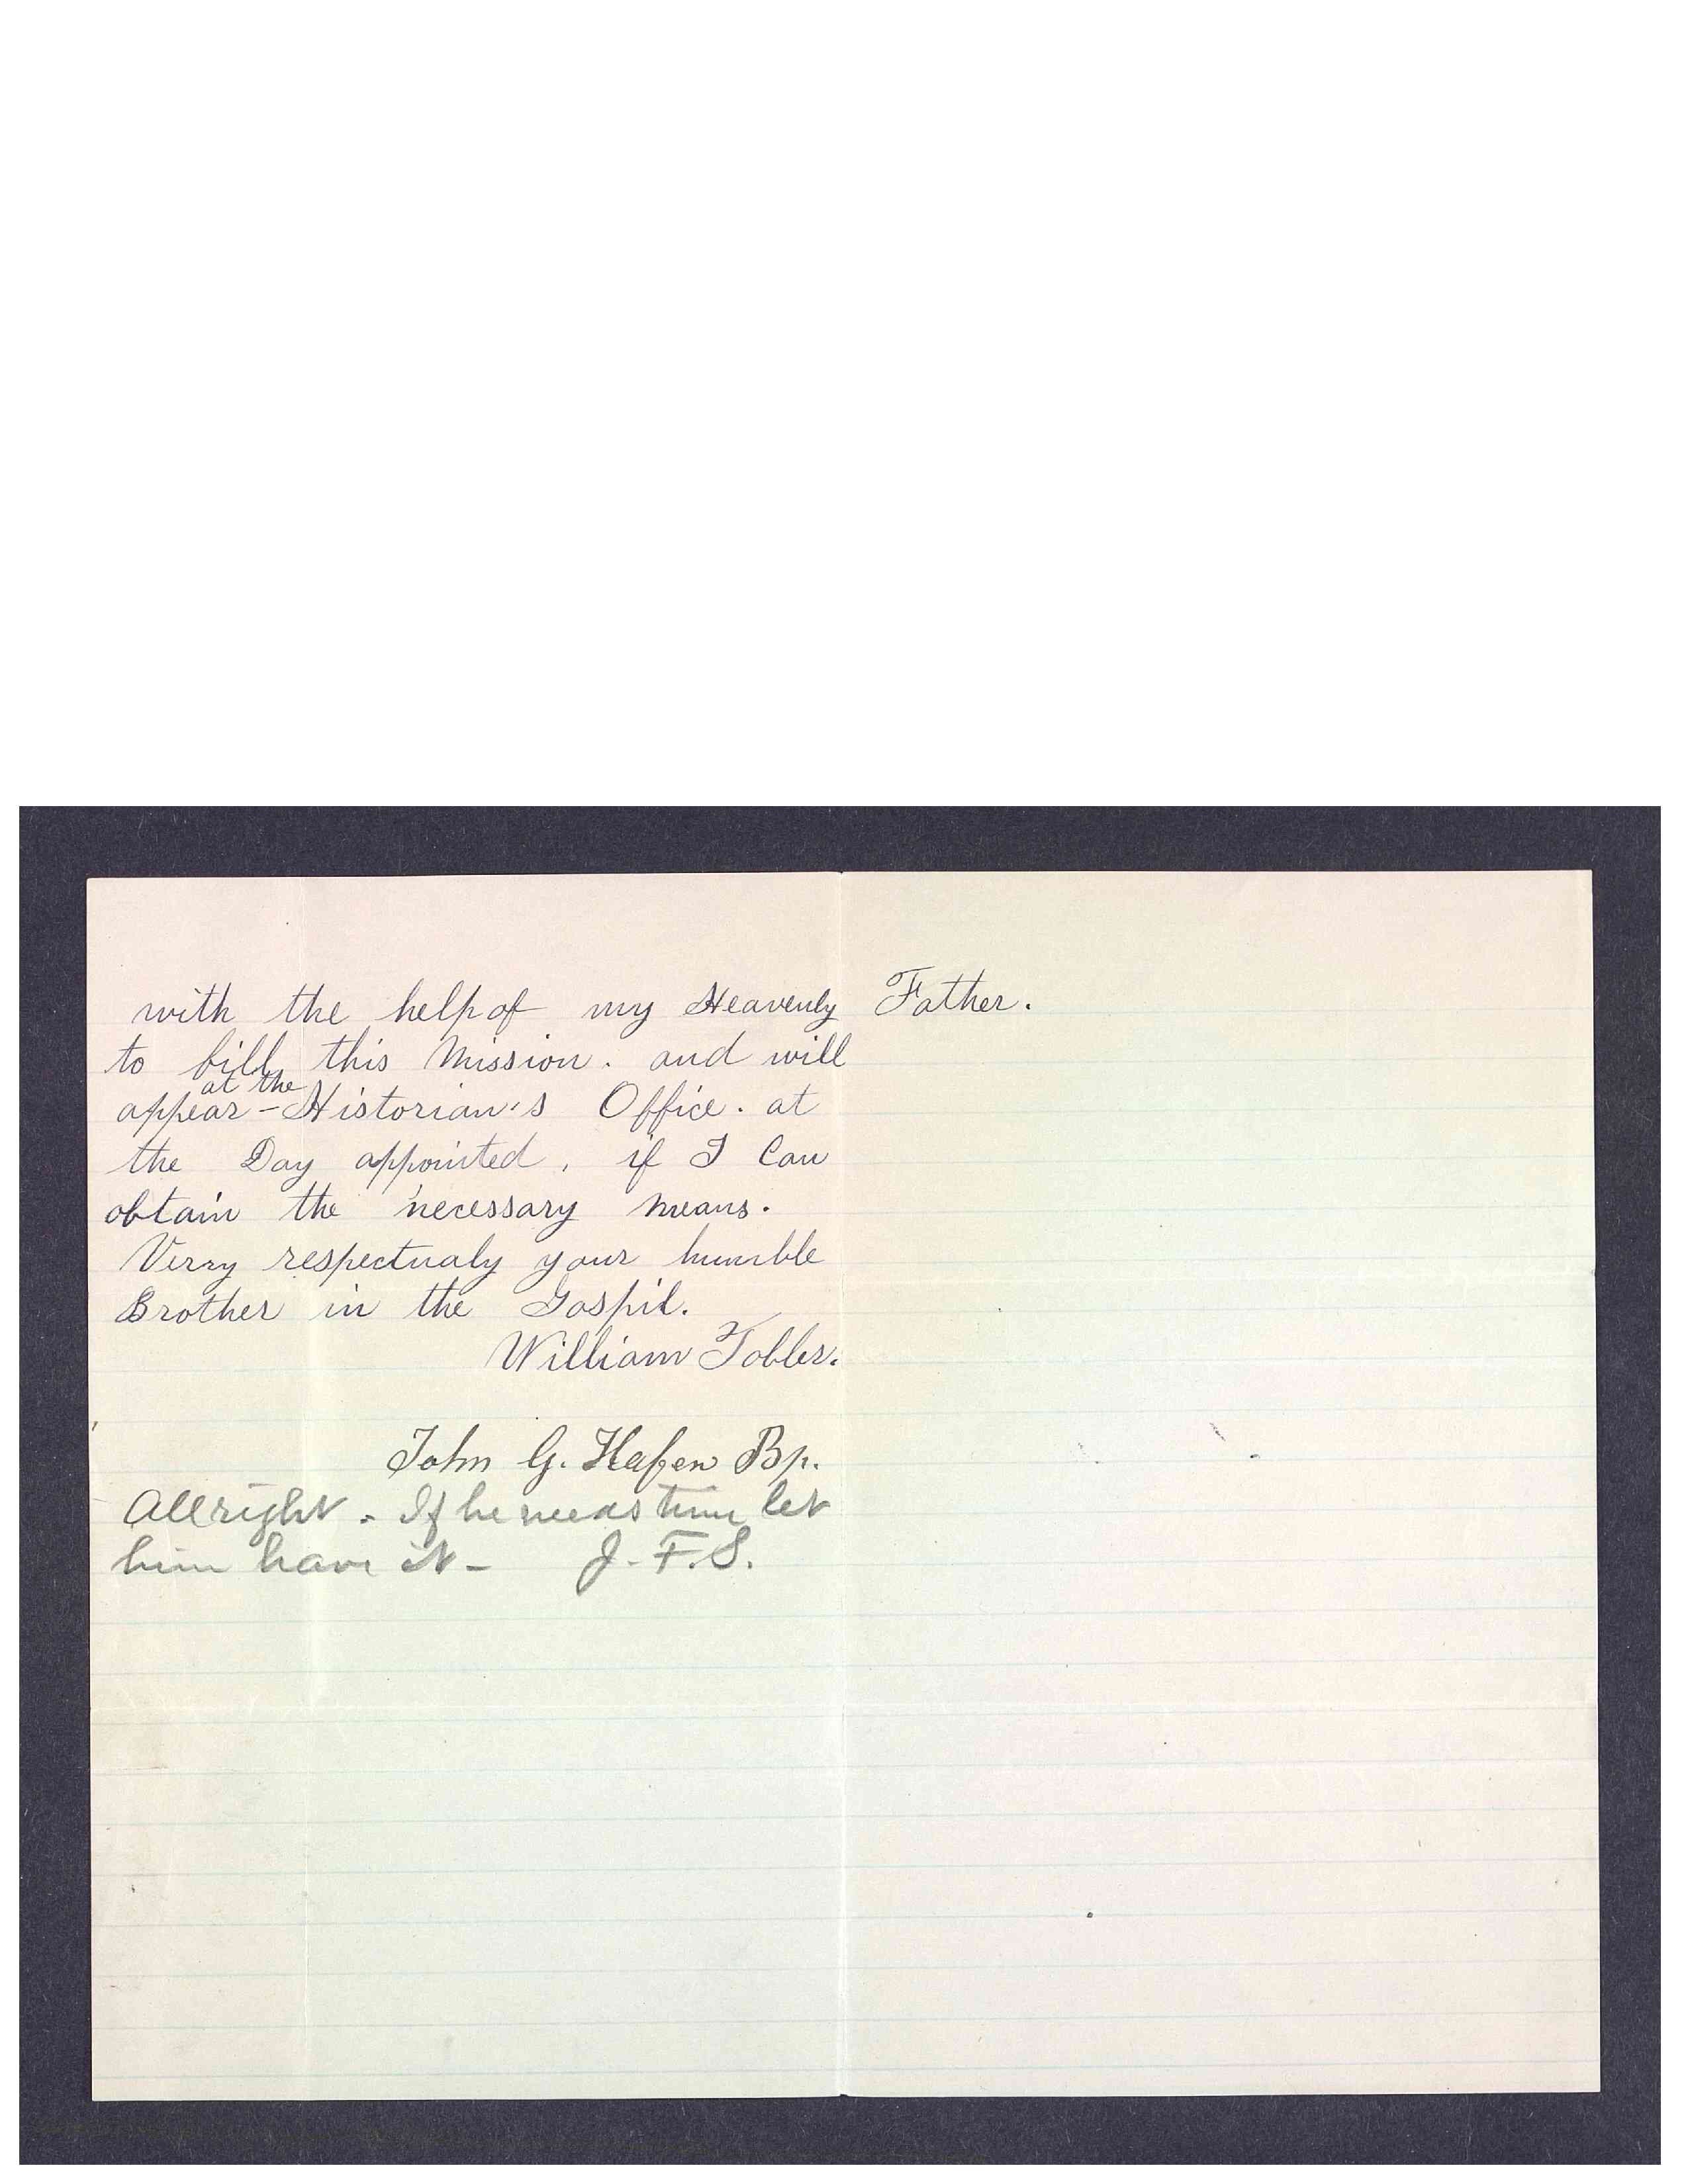 with the help of my Heavenly Father.
to fill this Mission. and will
at the
appear - Historian's Office. at
the Day appointed, if I Can
obtain the necessary means.
Verry respectualy your humble
Brother in the Gospil.
William Tobler.
John G. Hafen Bp.
All right. If he needs time let
him have it - J. F. S.